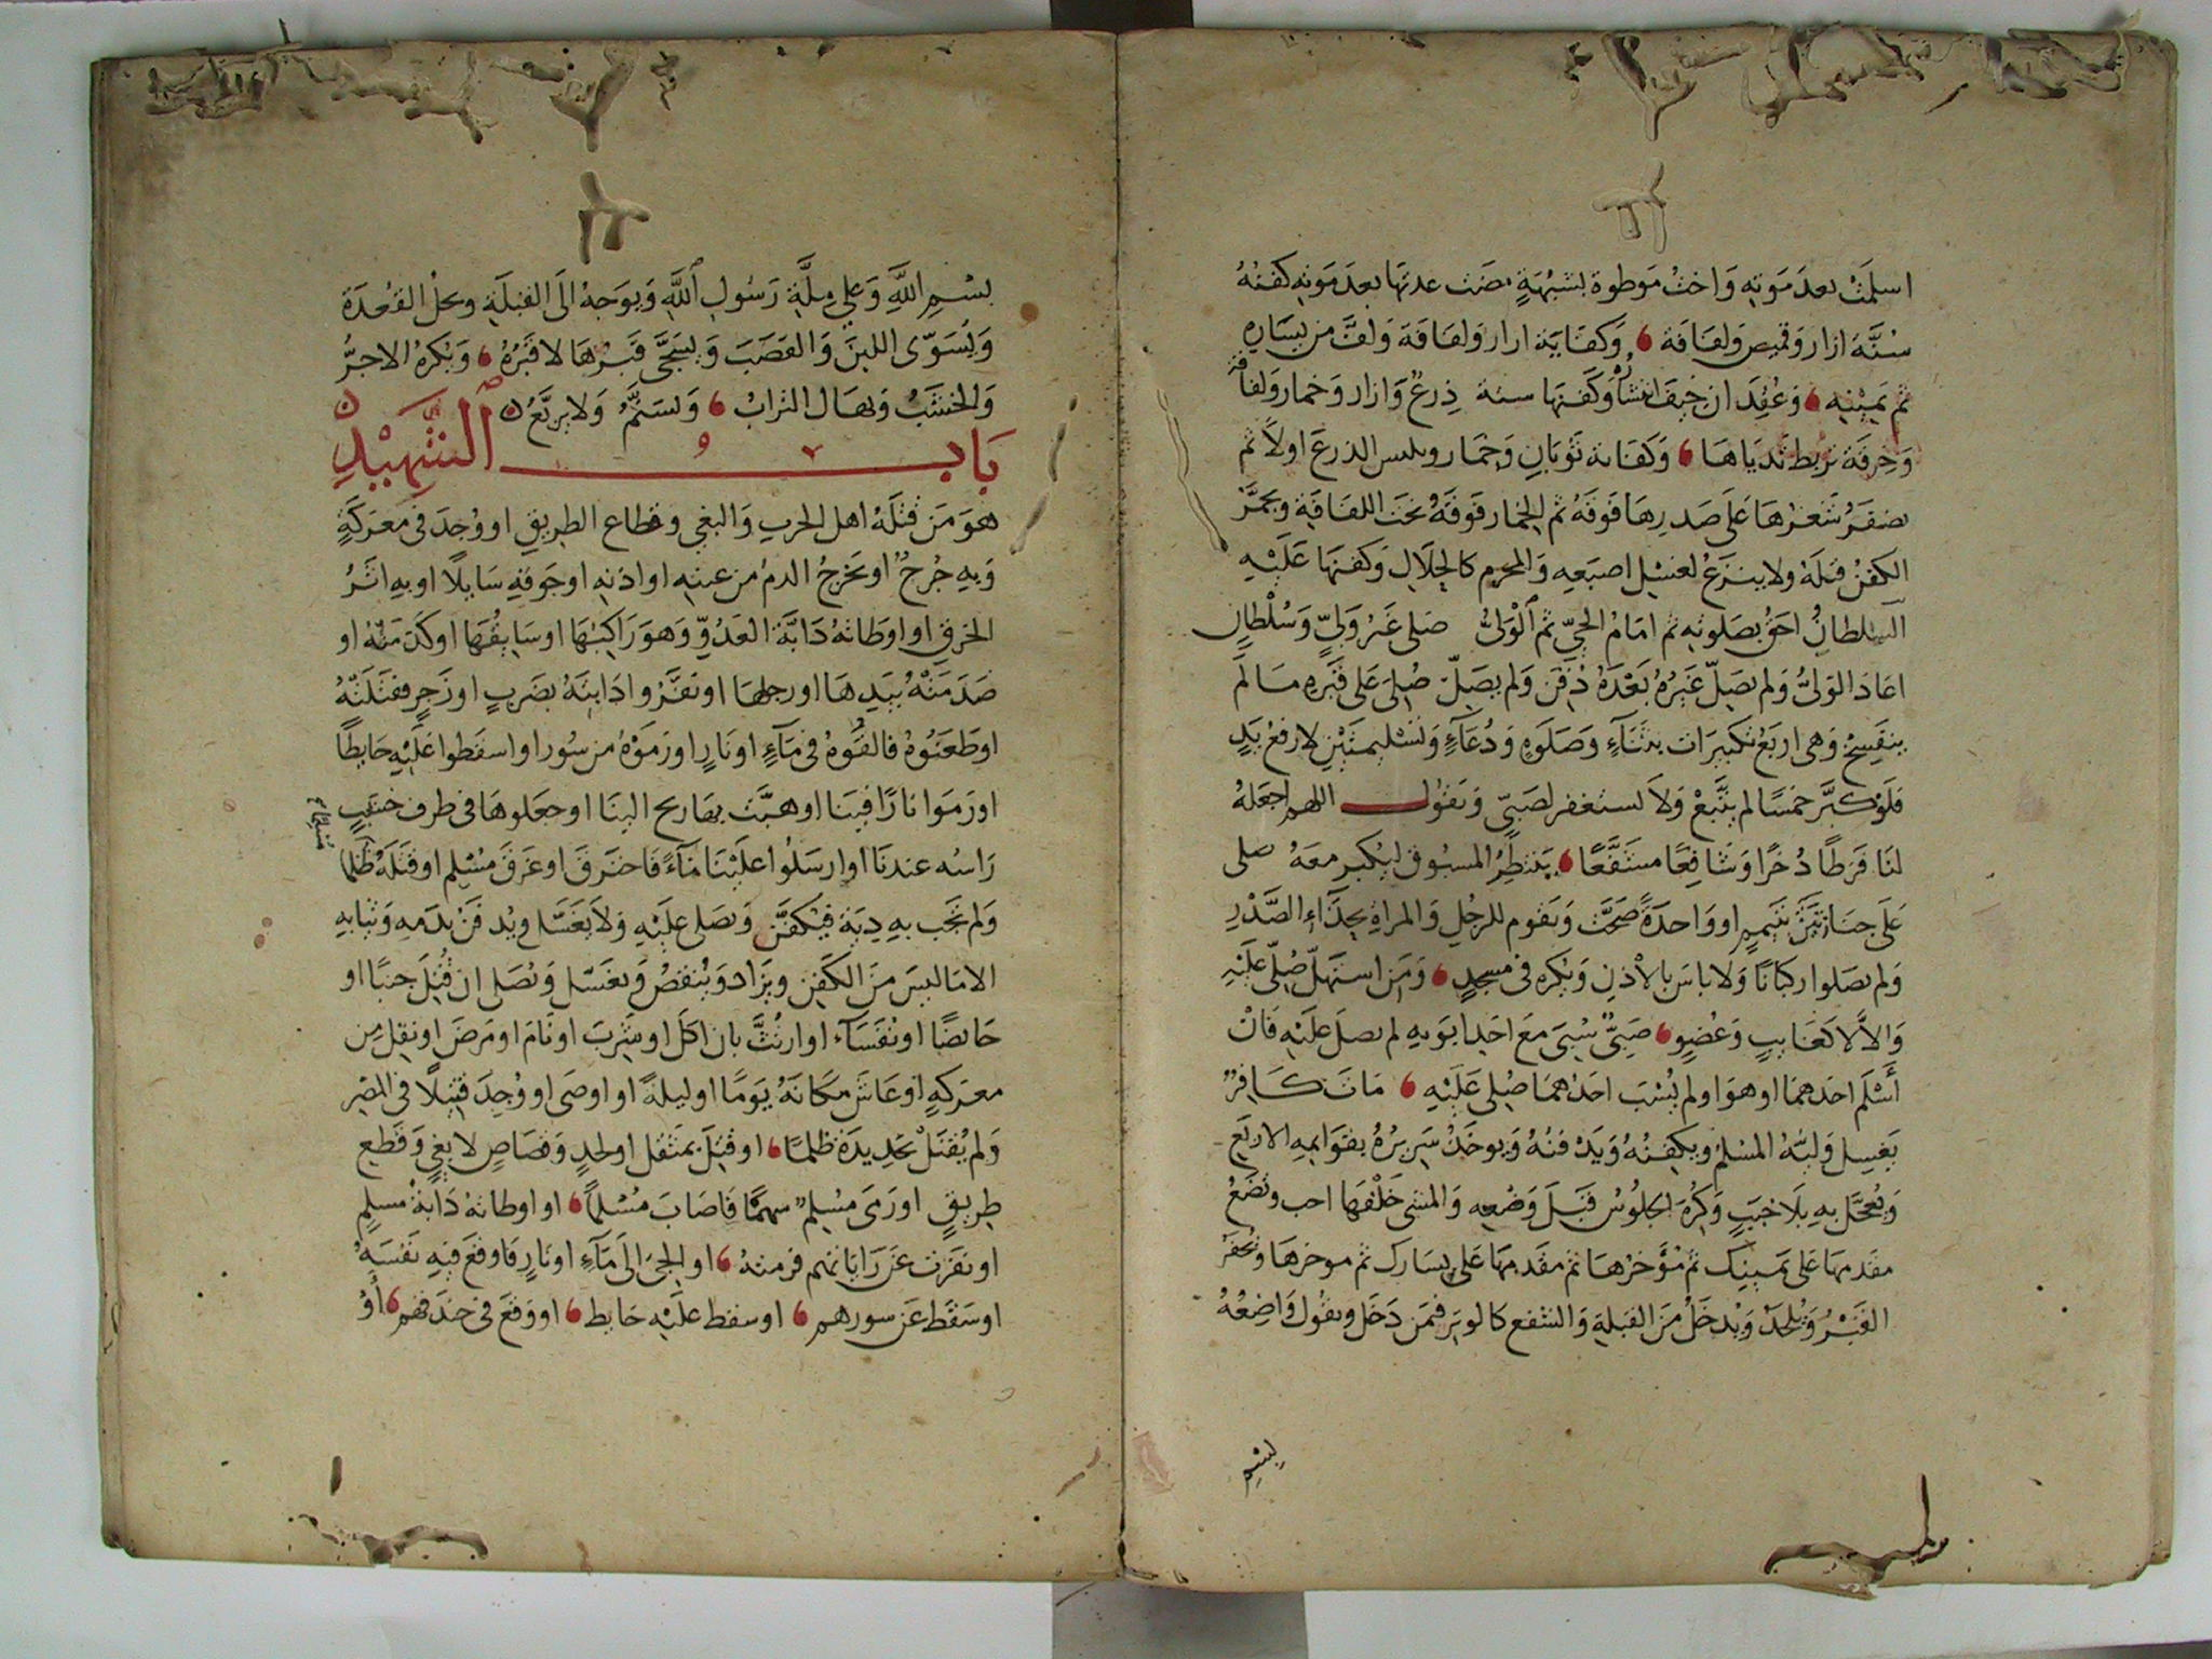 اسلمت بعد موته واخت موطوة بشبهة مضت عدتها بعد موته كفنه
سنة ازار وقميص ولفافة وكفاية ازار ولفافة ولف من يساره
ثم يمينه وعقد ان خيف انتشاره وكفنها سنة درع وازار وخمار ولفافة
وخرقة تربط ثدياها وكفاية ثوبان وخمار وتلبس الدرع اولا ثم
يضفر شعرها على صدرها فوقه ثم الخمار فوقه تحت اللفافة ويجمر
الكفن قبله ولا ينزع لغسل اصبعه والمحرم كالحلال وكفنها عليه
السلطان احق بصلوته ثم امام الحي ثم الولي صلى غير ولي وسلطان
اعاد الولي ولم يصل غيره بعده دفن ولم يصل صلي على قبره ما لم
ينفسخ وهي اربع تكبيرات بثناء وصلوة ودعاء وتسليمتين لا رفع يد
فلو كبر خمسا لم يتبع ولا يستغفر لصبي ويقول اللهم اجعله
لنا فرطا ذخرا وشافعا مشفعا ينتظر المسبوق ليكبر معه صلى
على جنازتين بتيمم او واحدة صحت ويقوم للرجل والمراة بحذاء الصدر
ولم يصلوا ركبانا ولا باس بالاذن ويكره في مسجد ومن استهل صلي عليه
والا لا كغايب وعضو صبي سبي مع احد ابويه لم يصل عليه فان
أسلم احدهما او هو او لم يسب احدهما صلي عليه مات كافر
يغسل وليه المسلم ويكفنه ويدفنه ويوخذ سريره بقوايمه الاربع
ويعجل به بلا خبب وكره الجلوس قبل وضعه والمشي خلفها احب وتضع
مقدمها على يمينك ثم مؤخرها ثم مقدمها على يسارك ثم موخرها ويحفر
القبر ويلحد ويدخل من القبلة والشفع كالوتر فمن دخل ويقول واضعه
بسم
بسم الله وعلى ملة رسول الله ويوجه الى القبلة وتحل العقدة
ويسوى اللبن والقصب ويسجى قبرها لا قبره ويكره الاجر
والخشب ويهال التراب ويسنم ولا يربع
باب الشهيد
هو من قتله اهل الحرب والبغي وقطاع الطريق او وجد في معركة
وبه جرح او يخرج الدم من عينه او اذنه او جوفه سايلا او به اثر
الحرق او اوطاته دابة العدو وهو راكبها او سايقها او كدمته او
صدمته بيدها او رجلها او نفروا دابته بضرب او زجر فقتلته
او طعنوه فالقوه في ماء او نار او رموه من سور او اسقطوا عليه حايطا
او رموا نارا فينا او هبت بها ريح الينا او جعلوها في طرف خشب
راسه عندنا او ارسلوا علينا ماء فاحترق او غرق مسلم او قتله ظلما
ولم تجب به دية فيكفن ويصلى عليه ولا يغسل ويدفن بدمه وثيابه
الا ما ليس من الكفن ويزاد وينقص ويغسل ويصلى ان قتل جنبا او
حايضا او نفساء او ارتث بان اكل او شرب او نام او مرض او نقل من
معركة او عاش مكانه يوما او ليلة او اوصى او وجد قتيلا في المصر
ولم يقتل بحديدة ظلما او قتل بمثقل او لحد وقصاص لا بغي وقطع
طريق او رمى مسلم سهما فاصاب مسلما او اوطاته دابة مسلم
او نفرت عن راياتهم فرمته او الجئ الى ماء او نار فاوقع فيه نفسه
او سقط عن سورهم او سقط عليه حايط او وقع في خندقهم أو